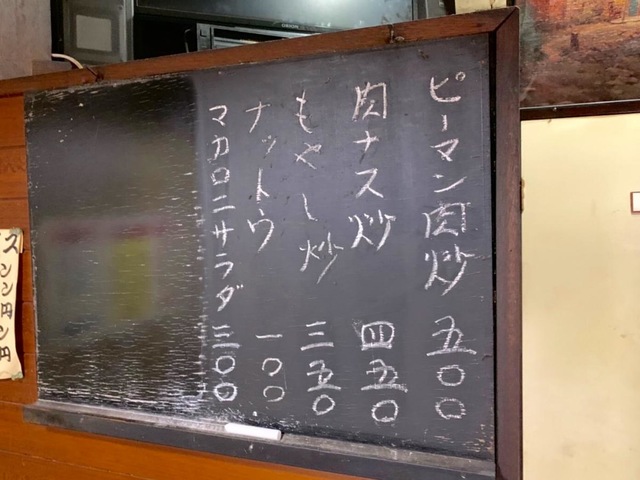 ピーマン肉炒 五〇〇
肉ナス炒 四五〇
もやし炒 三五〇
ナットウ 一〇〇
マカロニサラダ 三〇〇